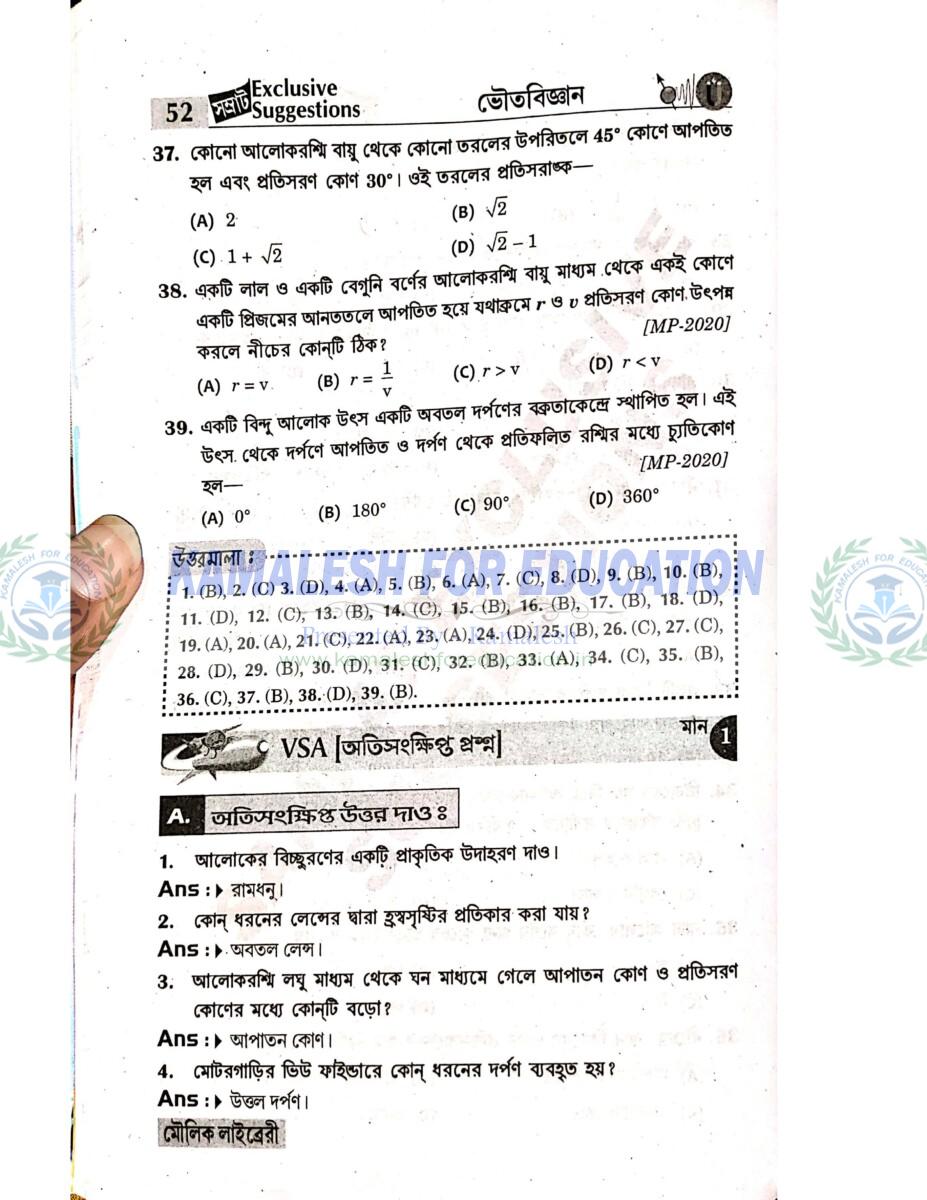 52 সম্রাট Exclusive Suggestions ভৌতবিজ্ঞান
37. কোনো আলোকরশ্মি বায়ু থেকে কোনো তরলের উপরিতলে 45° কোণে আপতিত
হল এবং প্রতিসরণ কোণ 30°। ওই তরলের প্রতিসরাঙ্ক—
(A) 2 (B) √2
(C) 1 + √2 (D) √2 – 1
38. একটি লাল ও একটি বেগুনি বর্ণের আলোকরশ্মি বায়ু মাধ্যম থেকে একই কোণে
একটি প্রিজমের আনততলে আপতিত হয়ে যথাক্রমে r ও v প্রতিসরণ কোণ উৎপন্ন
করলে নীচের কোন্‌টি ঠিক? [MP-2020]
(A) r = v (B) r = 1/v (C) r > v (D) r < v
39. একটি বিন্দু আলোক উৎস একটি অবতল দর্পণের বক্রতাকেন্দ্রে স্থাপিত হল। এই
উৎস থেকে দর্পণে আপতিত ও দর্পণ থেকে প্রতিফলিত রশ্মির মধ্যে চ্যুতিকোণ
হল— [MP-2020]
(A) 0° (B) 180° (C) 90° (D) 360°
উত্তরমালা :
KAMALESH FOR EDUCATION
1. (B), 2. (C) 3. (D), 4. (A), 5. (B), 6. (A), 7. (C), 8. (D), 9. (B), 10. (B),
11. (D), 12. (C), 13. (B), 14. (C), 15. (B), 16. (B), 17. (B), 18. (D),
19. (A), 20. (A), 21. (C), 22. (A), 23. (A), 24. (D), 25. (B), 26. (C), 27. (C),
28. (D), 29. (B), 30. (D), 31. (C), 32. (B), 33. (A), 34. (C), 35. (B),
36. (C), 37. (B), 38. (D), 39. (B).
VSA [অতিসংক্ষিপ্ত প্রশ্ন] মান 1
A. অতিসংক্ষিপ্ত উত্তর দাও :
1. আলোকের বিচ্ছুরণের একটি প্রাকৃতিক উদাহরণ দাও।
Ans : রামধনু।
2. কোন্ ধরনের লেন্সের দ্বারা হ্রস্বদৃষ্টির প্রতিকার করা যায়?
Ans : অবতল লেন্স।
3. আলোকরশ্মি লঘু মাধ্যম থেকে ঘন মাধ্যমে গেলে আপাতন কোণ ও প্রতিসরণ
কোণের মধ্যে কোন্‌টি বড়ো?
Ans : আপাতন কোণ।
4. মোটরগাড়ির ভিউ ফাইন্ডারে কোন্ ধরনের দর্পণ ব্যবহৃত হয়?
Ans : উত্তল দর্পণ।
মৌলিক লাইব্রেরী